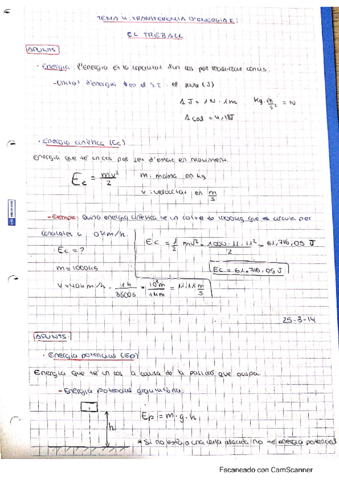 TEMA 4: TRANSFERÈNCIA D'ENERGIA:
EL TREBALL
APUNTS
· Energia: l'energia és la capacitat d'un cos per realitzar canvis.
- Unitat d'energia en el S.I. el joule (J)
1 J = 1N · 1m   Kg · m/s² = N
1 cal = 4,18J
· Energia cinètica (Ec)
Energia que té un cos pel fet d'estar en moviment.
Ec = mv²/2   m: massa en kg
v: velocitat en m/s
- Exemple: Quina energia cinètica té un cotxe de 1000kg que es mou per
a 40km/h.
Ec = ?
Ec = 1/2 mv² = 1000 · 11,11²/2 = 61.716,05 J
m = 1000kg
Ec = 61.716,05 J
v = 40km/h · 1h/3600s · 10³m/1km = 11,11 m/s
25-3-14
APUNTS
· Energia potencial (Ep)
Energia que té un cos a causa de la posició que ocupa.
- Energia potencial gravitatòria
Ep = m · g · h
h
* Si no està a una certa alçada no té energia potencial
Escaneado con CamScanner